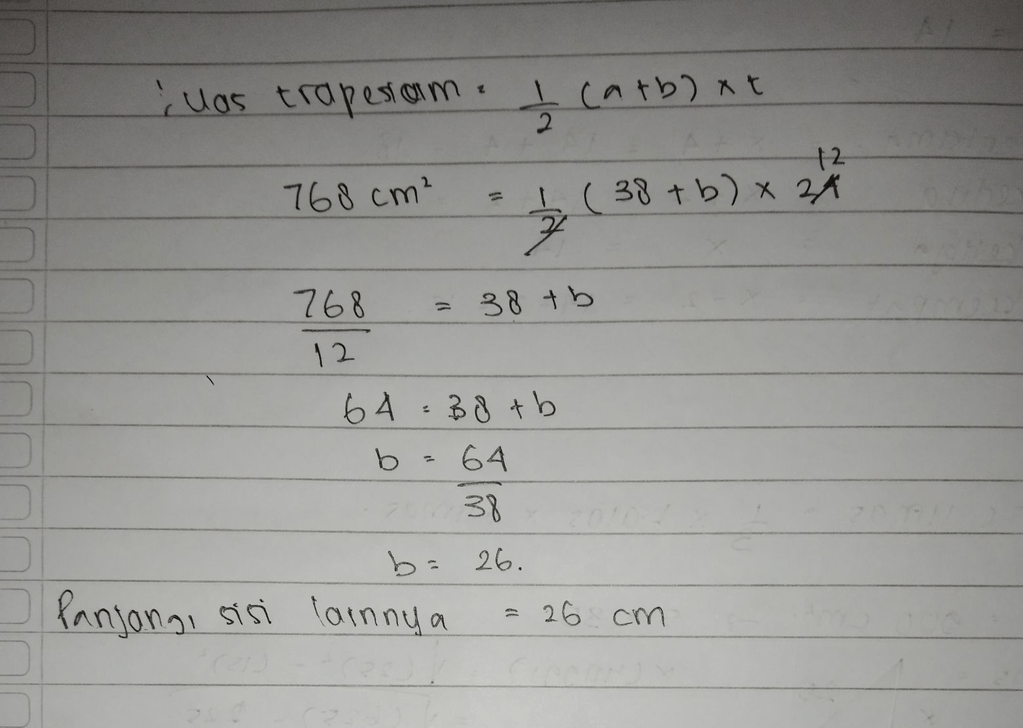 Luas trapesium = 1/2 (a+b) x t
768 cm² = 1/2 (38 + b) x 24 12
768/12 = 38 + b
64 = 38 + b
b = 64/38
b = 26.
Panjang sisi lainnya = 26 cm